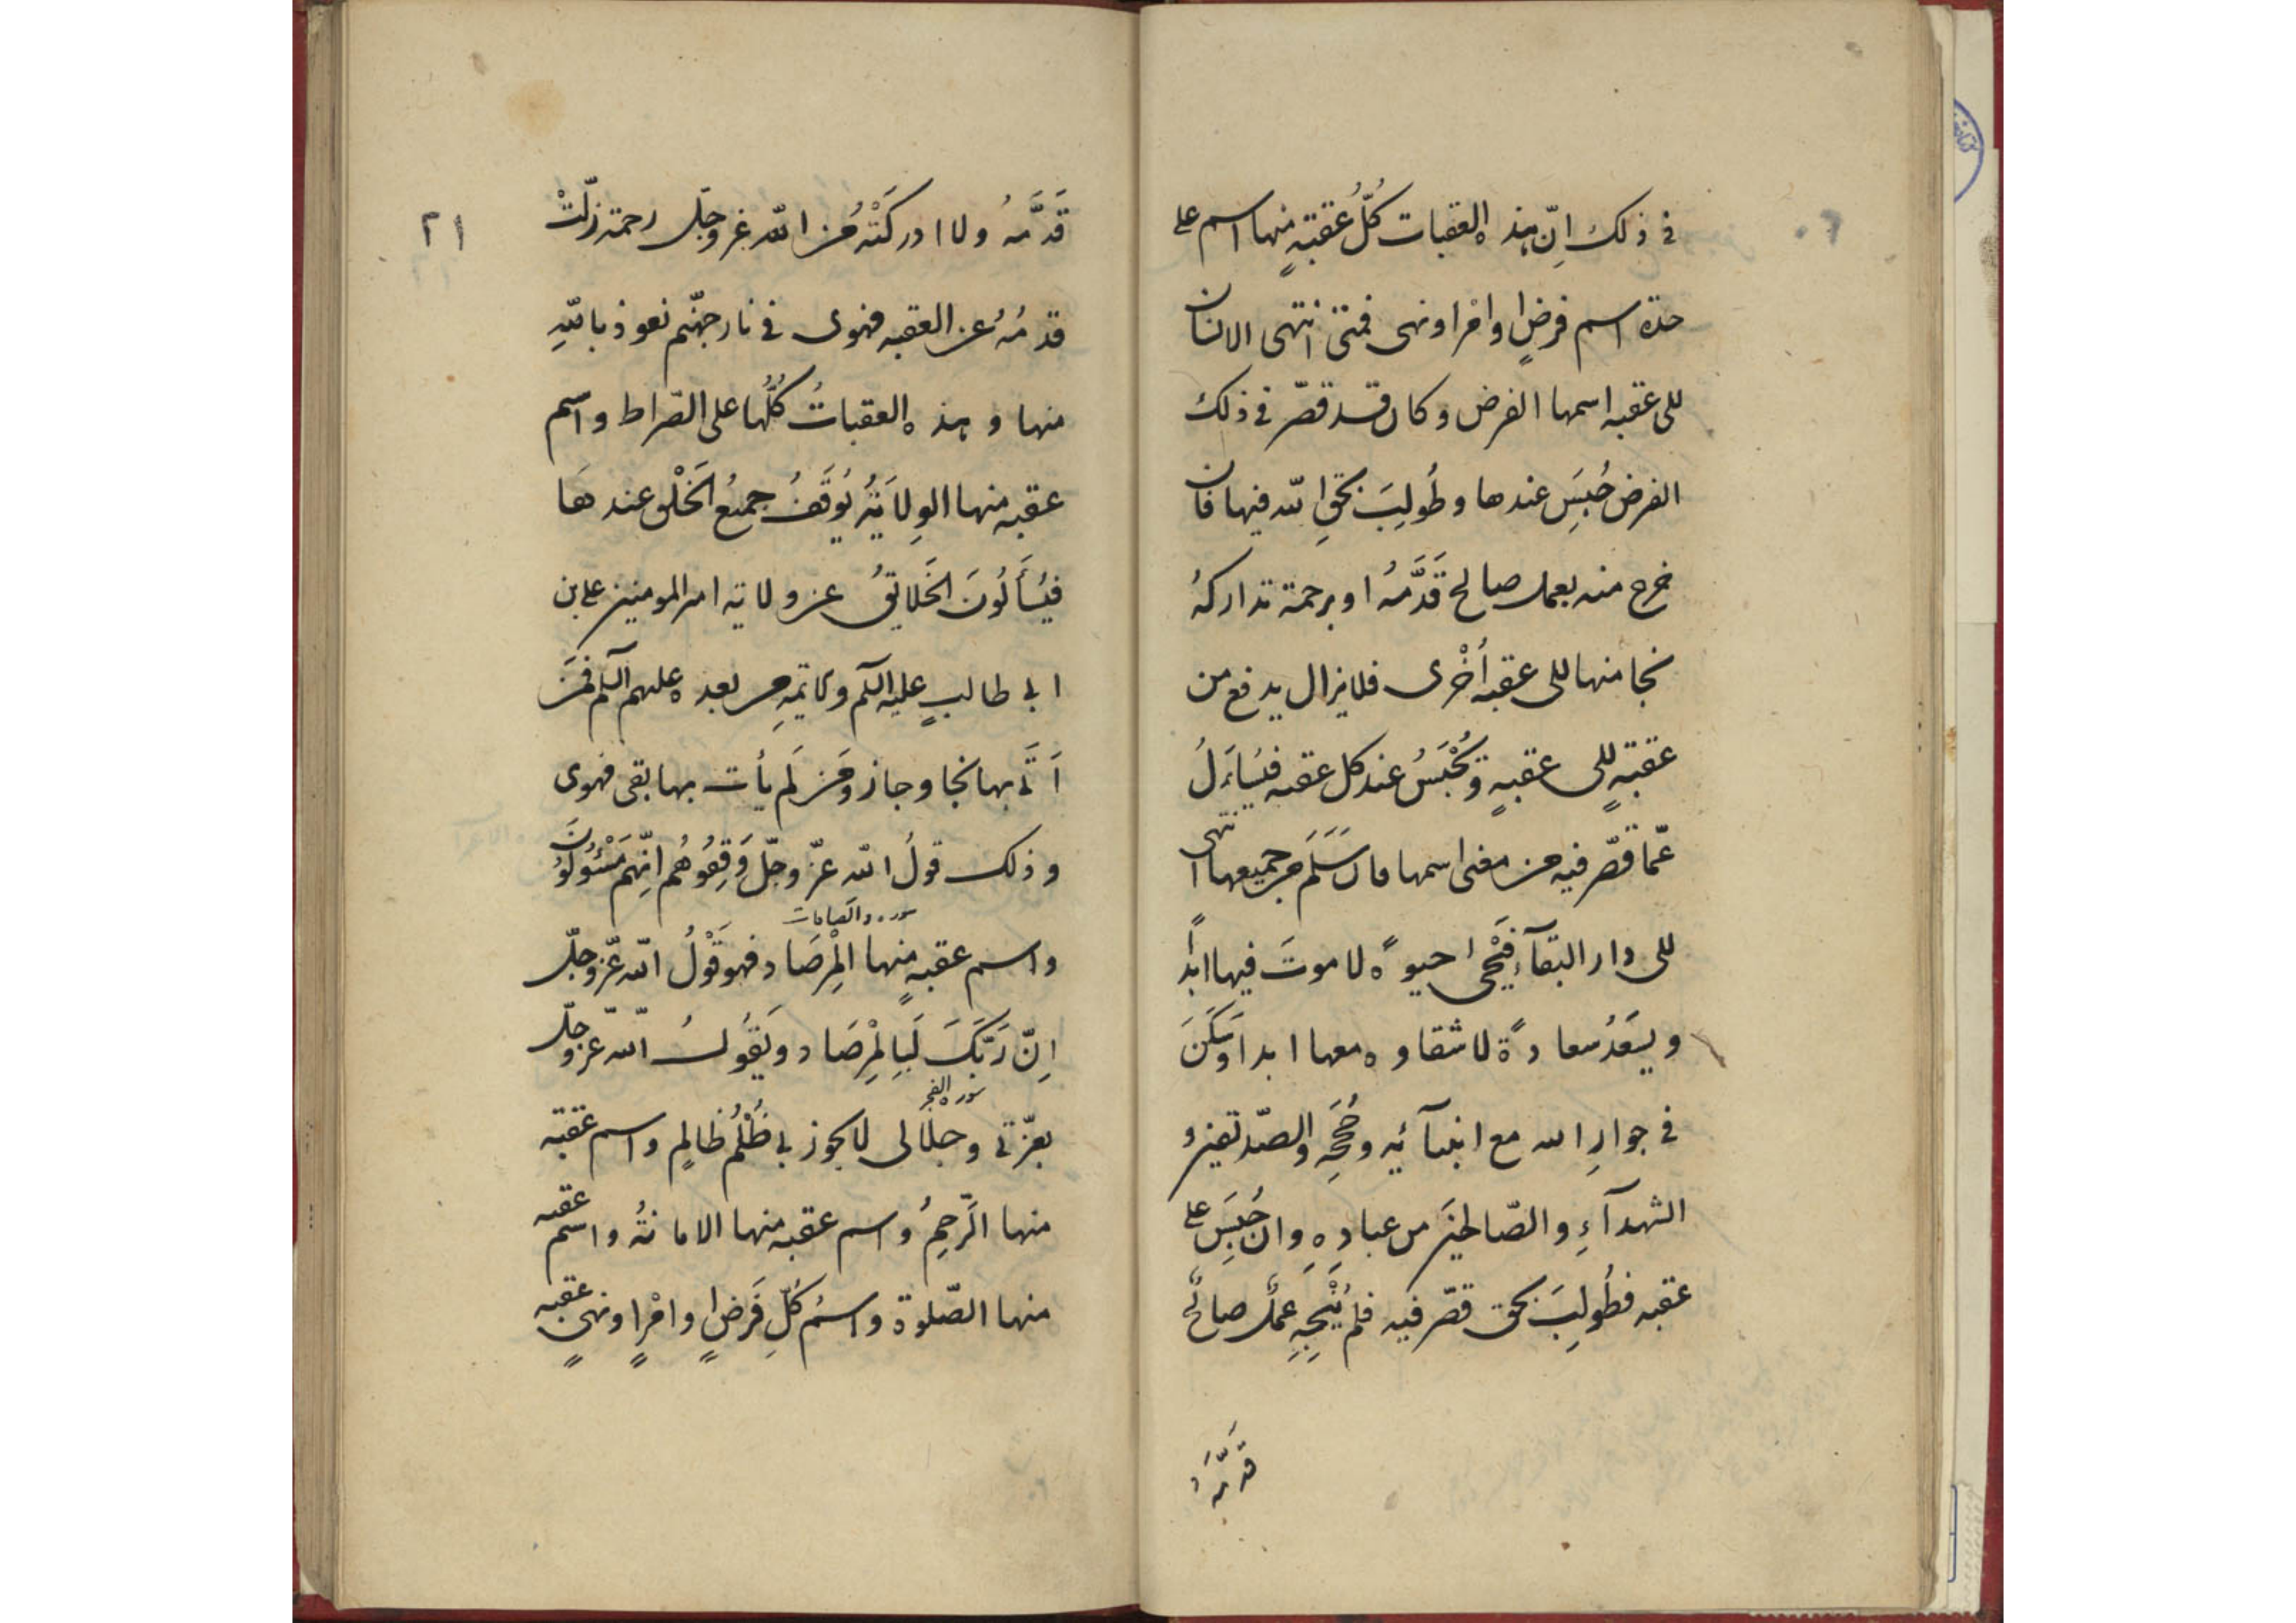 في ذلك اِنّ هذه العقبات كُلُّ عقبةٍ منها اسم على
حدة اسم فرضٍ او امْر او نهى فمتى انتهى الانسان
الى عقبه اسمها الفرض وكان قد قصّر فى ذلك
الفرض حُبِسَ عندها وطُولِبَ بحقِ الله فيها فان
خرج منه بعمل صالح قَدَّمَهُ او برحمة تداركهُ
نجا منها الى عقبه أُخْرى فلا يزال يدفع من
عقبةٍ الى عقبةٍ ويُحْبَسُ عند كل عقبه فيُسأَلُ
عمّا قصّر فيه من معنى اسمها فان سَلَمَ من جميعها انتهى
الى دار البقآءِ فَيَحْيى حيوةً لا موتَ فيها ابداً
ويسعَدُ سعادةً لا شقاوه معها ابدا وسَكَنَ
فى جوارِ الله مع انبيآئه وحُجَجِهِ والصّديقين و
الشهدآءِ والصّالحينَ من عبادِهِ وان حُبِسَ على
عقبه فطُولِبَ بحق قصّر فيه فلم يُنْجِهِ عملٌ صالحٌ
قَدَّمَهُ
٢١
قَدَّمَهُ ولا ادركَتْهُ من الله عز وجلّ رحمة زلّتْ
قدمُهُ عن العقبه فهوى فى نار جهنّم نعوذ باللهِ
منها وهذه العقباتُ كُلُّها على الصّراط واسم
عقبه منها الوِلايَةُ يُوقَفُ جميعُ الخَلْق عندها
فيُسأَلُونَ الخَلايقُ عن ولايه امير المومنين على بن
ابى طالبٍ عليه السلم والايمهِ من بعده عليهم السلم فمَن
اَتَى بها نجا وجاز ومَن لَم يأت بها بقى فهوى
وذلك قولُ الله عزّ وجلّ وَقِفُوهُم اِنّهم مَسْئُولُونَ
سوره والصافات
واسم عقبهٍ منها المِرْصَاد فهو قَوْلُ الله عزّ وجلّ
اِنّ رَبّكَ لَبِالمِرْصَاد ويَقُولُ الله عزّ وجلّ
سوره الفجر
بعزّتى وجلَالى لا يجوز بى ظُلْمُ ظالمٍ واسم عقبه
منها الرَّحِمُ واسم عقبه منها الامانةُ واسم عقبه
منها الصّلوة واسْمُ كُلِّ فَرَضٍ او امْرٍ او نهىٍ عقبه